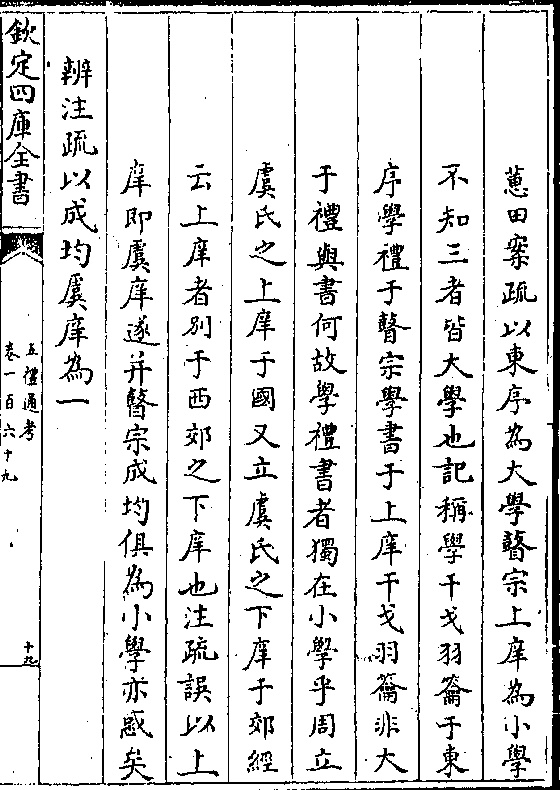 蕙田案疏以東序為大學瞽宗上庠為小學
不知三者皆大學也記稱學干戈羽籥于東
序學禮于瞽宗學書于上庠干戈羽籥非大
于禮與書何故學禮書者獨在小學乎周立
虞氏之上庠于國又立虞氏之下庠于郊經
云上庠者别于西郊之下庠也注疏誤以上
庠即虞庠遂并瞽宗成均俱為小學亦惑矣
辨注疏以成均虞庠為一
欽定四庫全書
五禮通考
卷一百六十九
十九